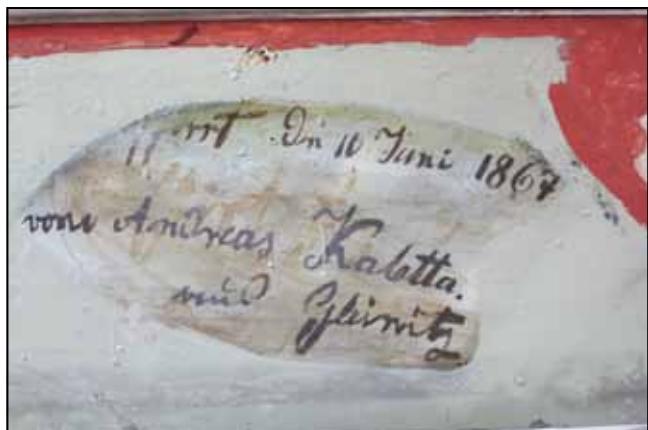 Dn 10 Juni 1867
vom Andreas Kalotta.
aus Gleinitz